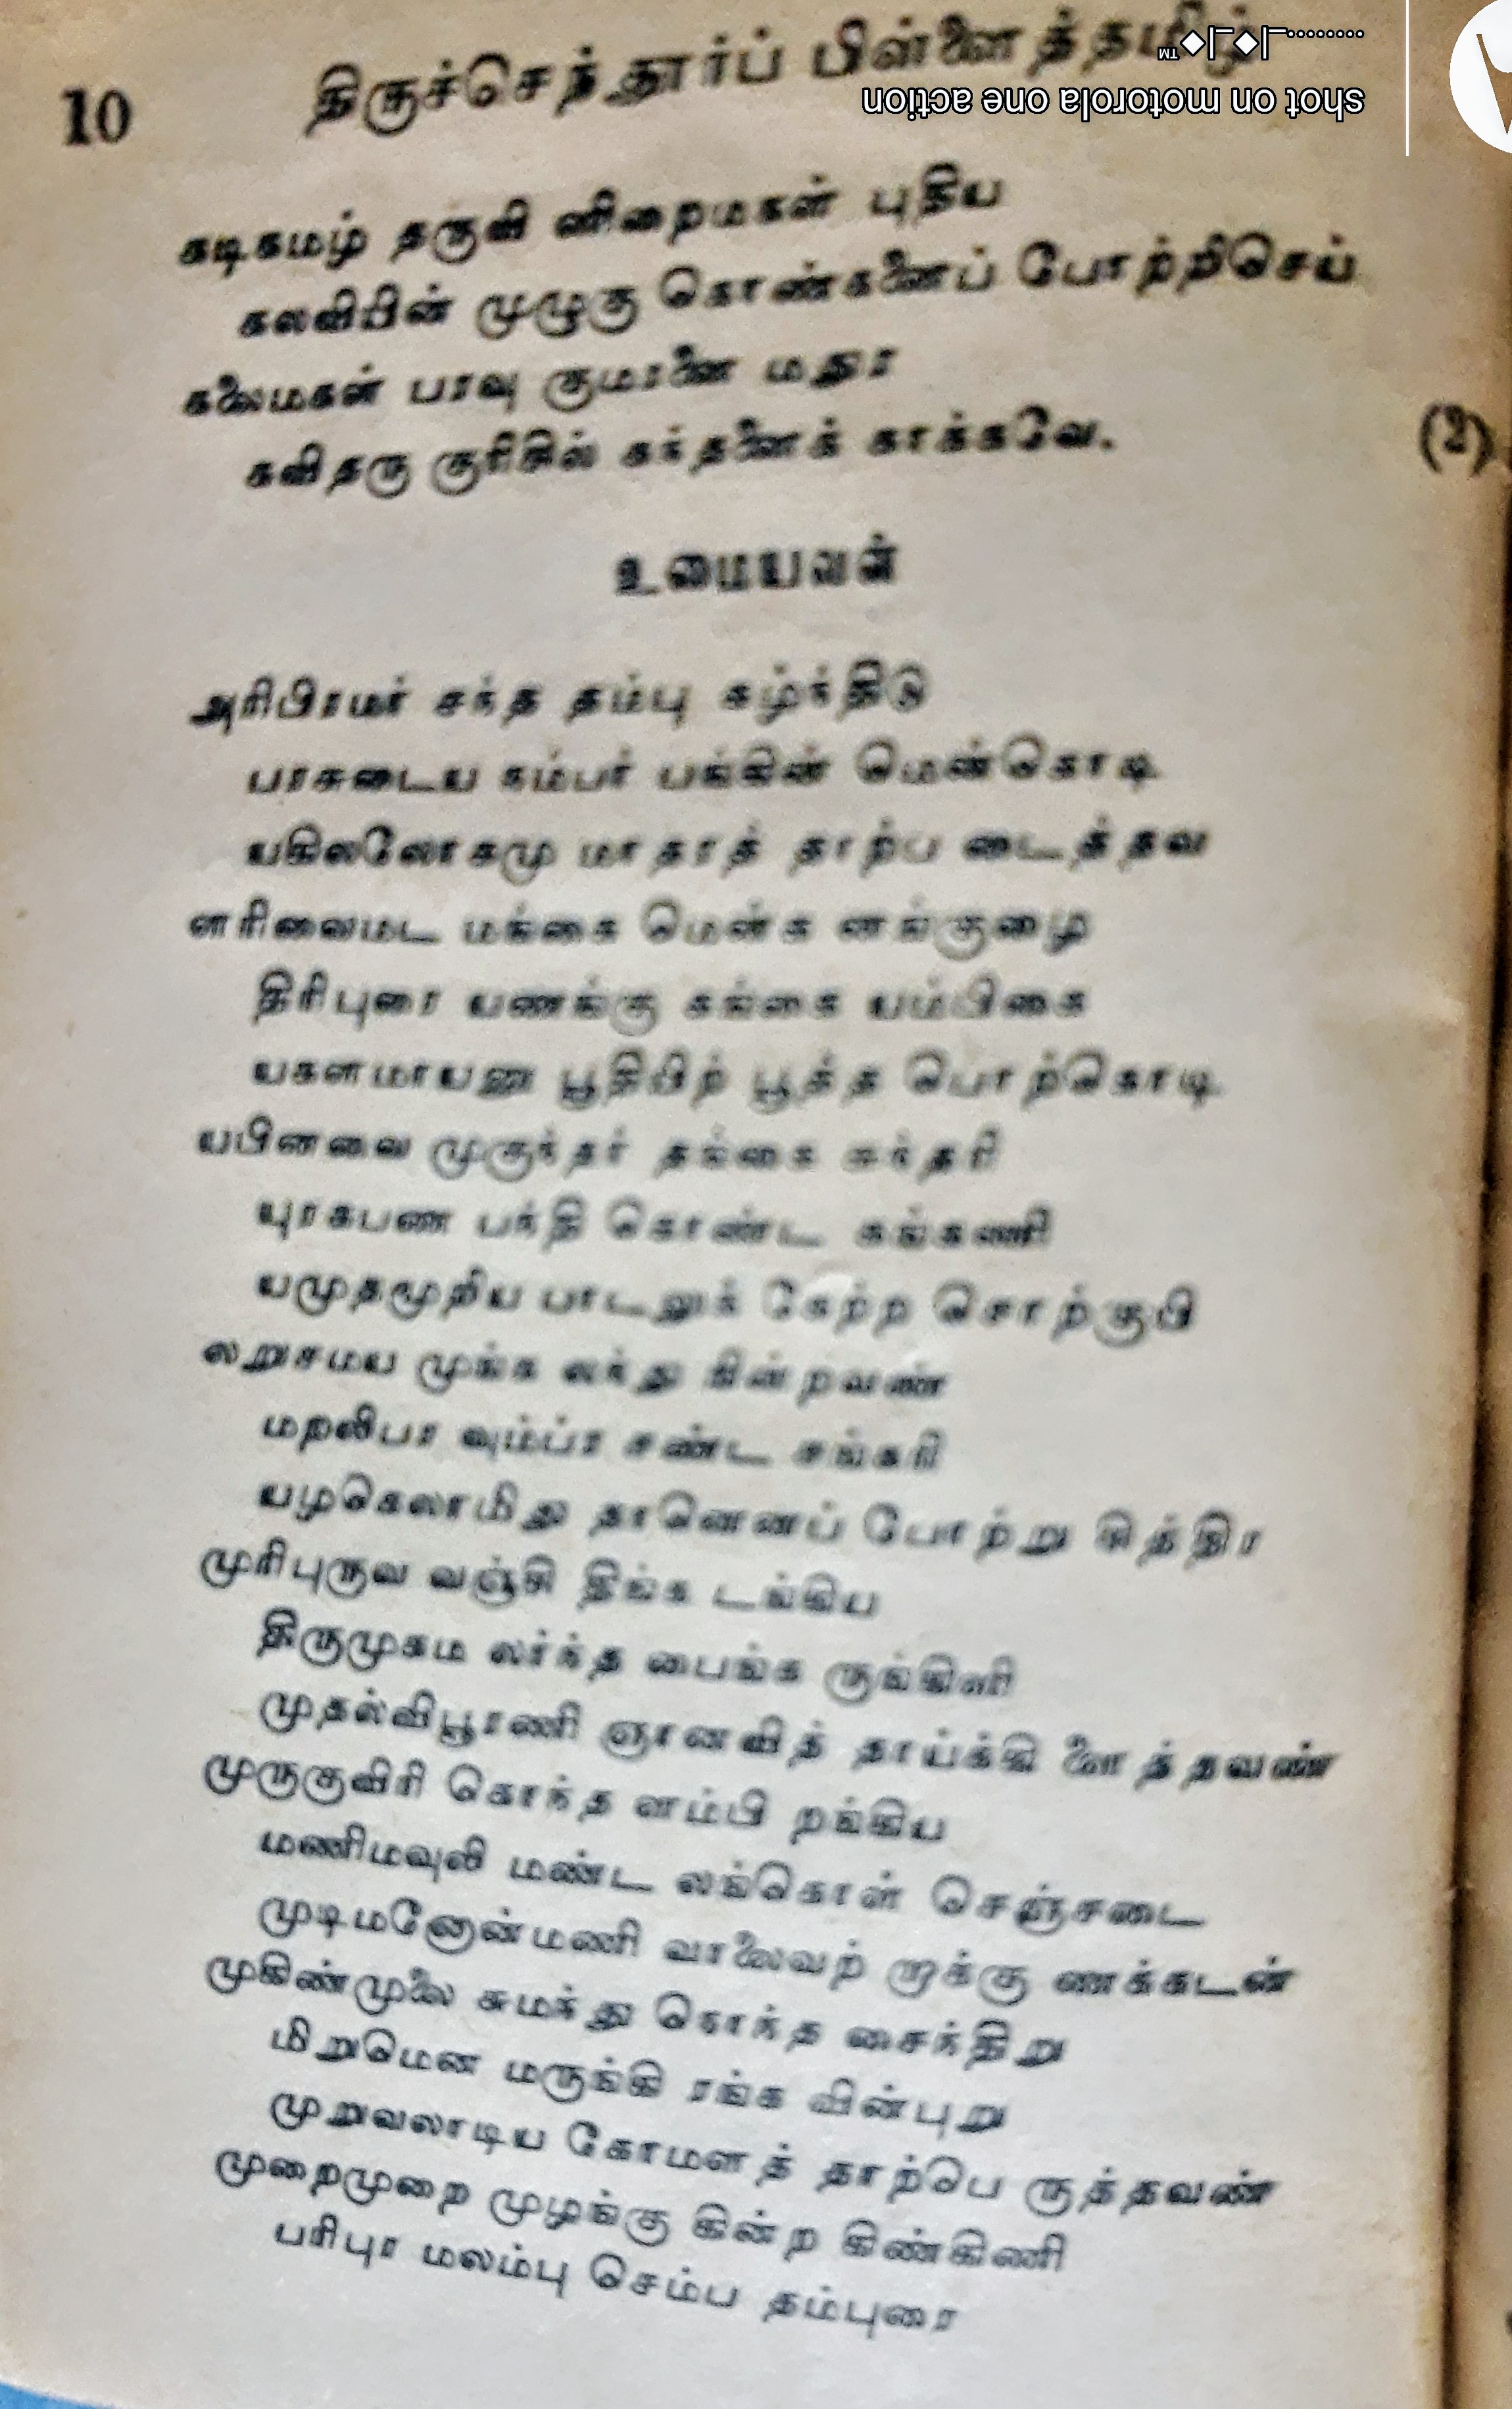 10
திருச்செந்தூர்ப் பிள்ளைத்தமிழ்
shot on motorola one action
கடிகமழ் தருவி னிறைமகள் புதிய
கலவியின் முழுகு கொண்கனைப் போற்றிசெய்
கலைமகள் பரவு குமரனை மதுர
கவிதரு குரிசில் கந்தனைக் காக்கவே. (2)
உமையவள்
அரிபிரமர் சந்த தம்பு கழ்ந்திடு
பரசுடைய நம்பர் பங்கின் மென்கொடி
யகிலலோகமு மாதரத் தாற்ப டைத்தவ
ளரிவைமட மங்கை மென்க னங்குழை
திரிபுரை யணங்கு கங்கை யம்பிகை
யகளமாயணு பூதியிற் பூத்த பொற்கொடி
யபினவை முகுந்தர் தங்கை சுந்தரி
யுரகபண பந்தி கொண்ட கங்கணி
யமுதமூறிய பாடலுக் கேற்ற சொற்குயி
லறுசமய முங்க வந்து நின்றவண்
மறலிபர வும்ப்ர சண்ட சங்கரி
யழகெலாமிது தானெனப் போற்று சித்திர
முரிபுருவ வஞ்சி திங்க டங்கிய
திருமுகம லர்ந்த பைங்க ருங்கிளி
முதல்விபூரணி ஞானவித் தாய்க்கி ளைத்தவண்
முருகுவிரி கொந்த ளம்பி றங்கிய
மணிமவுலி மண்ட லங்கொள் செஞ்சடை
முடிமனோன்மணி வாலைவற் றாக்கு ணக்கடன்
முகிண்முலை சுமந்து நொந்த சைந்திறு
மிறுமென மருங்கி ரங்க வின்புறு
முறுவலாடிய கோமளத் தாற்பெ ருத்தவண்
முறைமுறை முழங்கு கின்ற கிண்கிணி
பரிபுர மலம்பு செம்ப தம்புரை